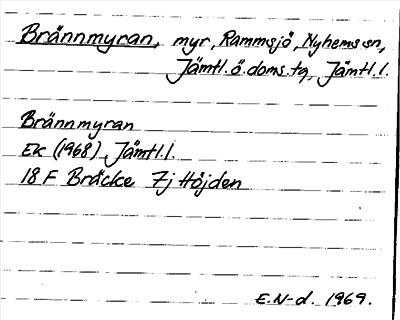 Brännmyran, myr, Rammsjö, Nyhems sn,
Jämtl. ö. doms. tg, Jämtl. l.
Brännmyran
Ek (1968) Jämtl. l.
18 F Bräcke 7j Höjden
E.N-d. 1969.